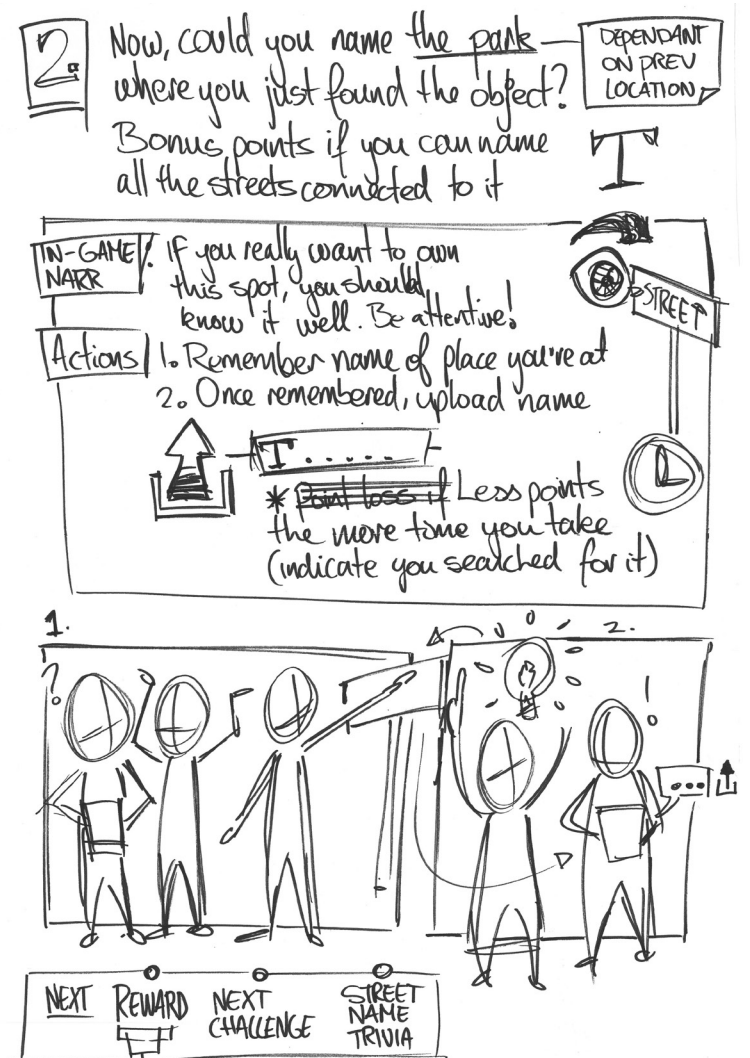 2.
Now, could you name the park
where you just found the object?
Bonus points if you can name
all the streets connected to it
DEPENDANT
ON PREV
LOCATION
T
IN-GAME
NARR
! If you really want to own
this spot, you should
know it well. Be attentive!
STREET
Actions
1. Remember name of place you're at
2. Once remembered, upload name
T.....
* Point loss if Less points
the more time you take
(indicate you searched for it)
1.
?
2.
!
...
NEXT
REWARD
NEXT
CHALLENGE
STREET
NAME
TRIVIA